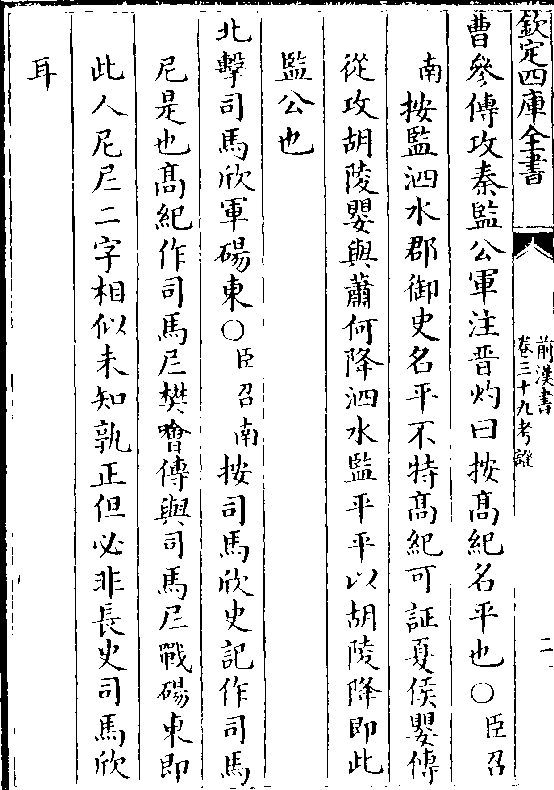 欽定四庫全書
前漢書
卷三十九考證
二
曹參傳攻秦監公軍注晋灼曰按髙紀名平也○臣召
南按監泗水郡御史名平不特髙紀可証夏侯嬰傳
從攻胡陵嬰與蕭何降泗水監平平以胡陵降即此
監公也
北擊司馬欣軍碭東○臣召南按司馬欣史記作司馬
尼是也髙紀作司馬𡰥樊噲傳與司馬𡰥戰碭東即
此人尼𡰥二字相似未知孰正但必非長史司馬欣
耳